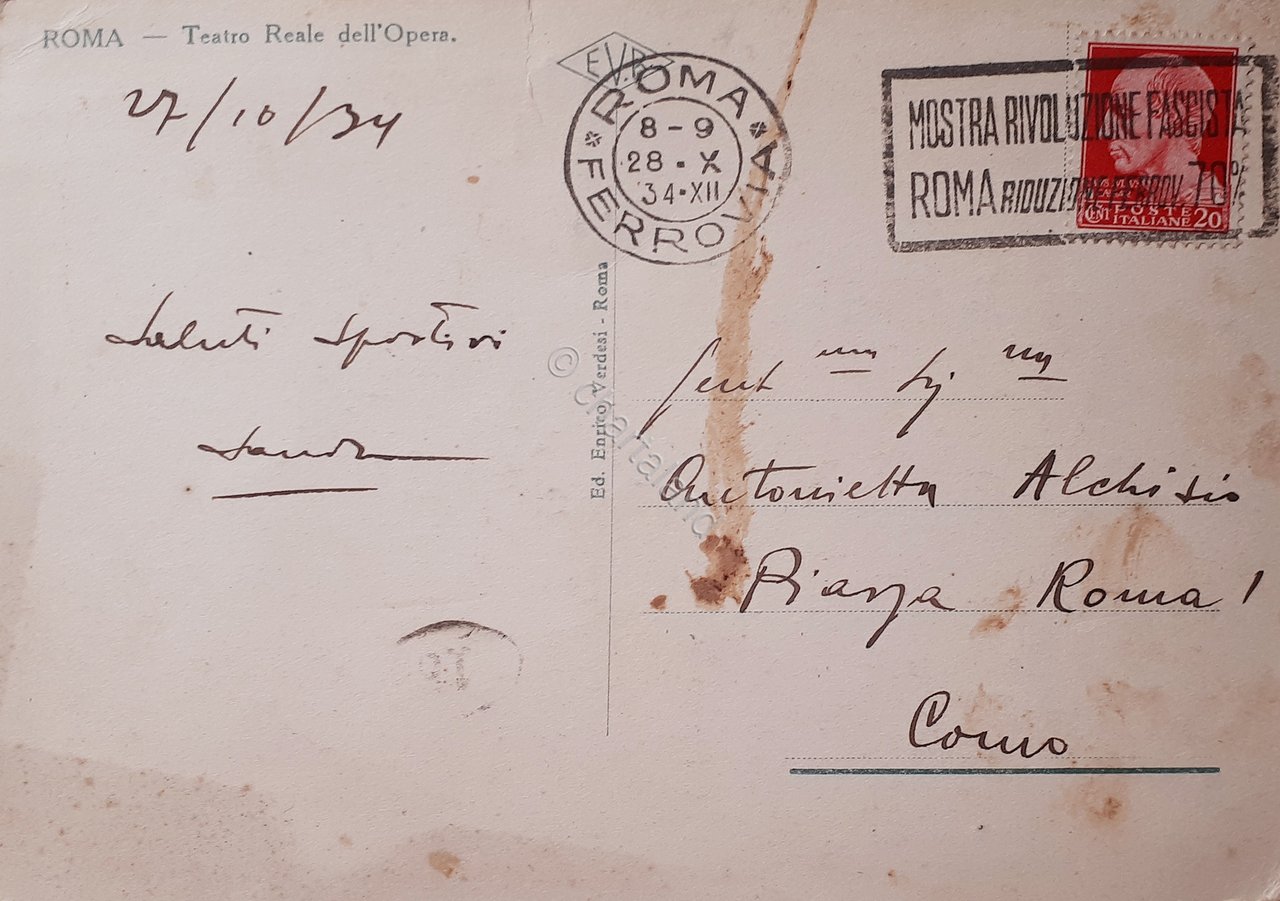 ROMA — Teatro Reale dell'Opera.
27/10/34
Saluti sportivi
E.V.R.
ROMA FERROVIA
8-9
28·X
34·XII
MOSTRA RIVOLUZIONE FASCISTA
ROMA RIDUZIONE FERROV. 70%
CENT POSTE ITALIANE 20
Ed. Enrico Verdesi - Roma
Gent
Antonietta Alchisio
Piazza Roma 1
Como